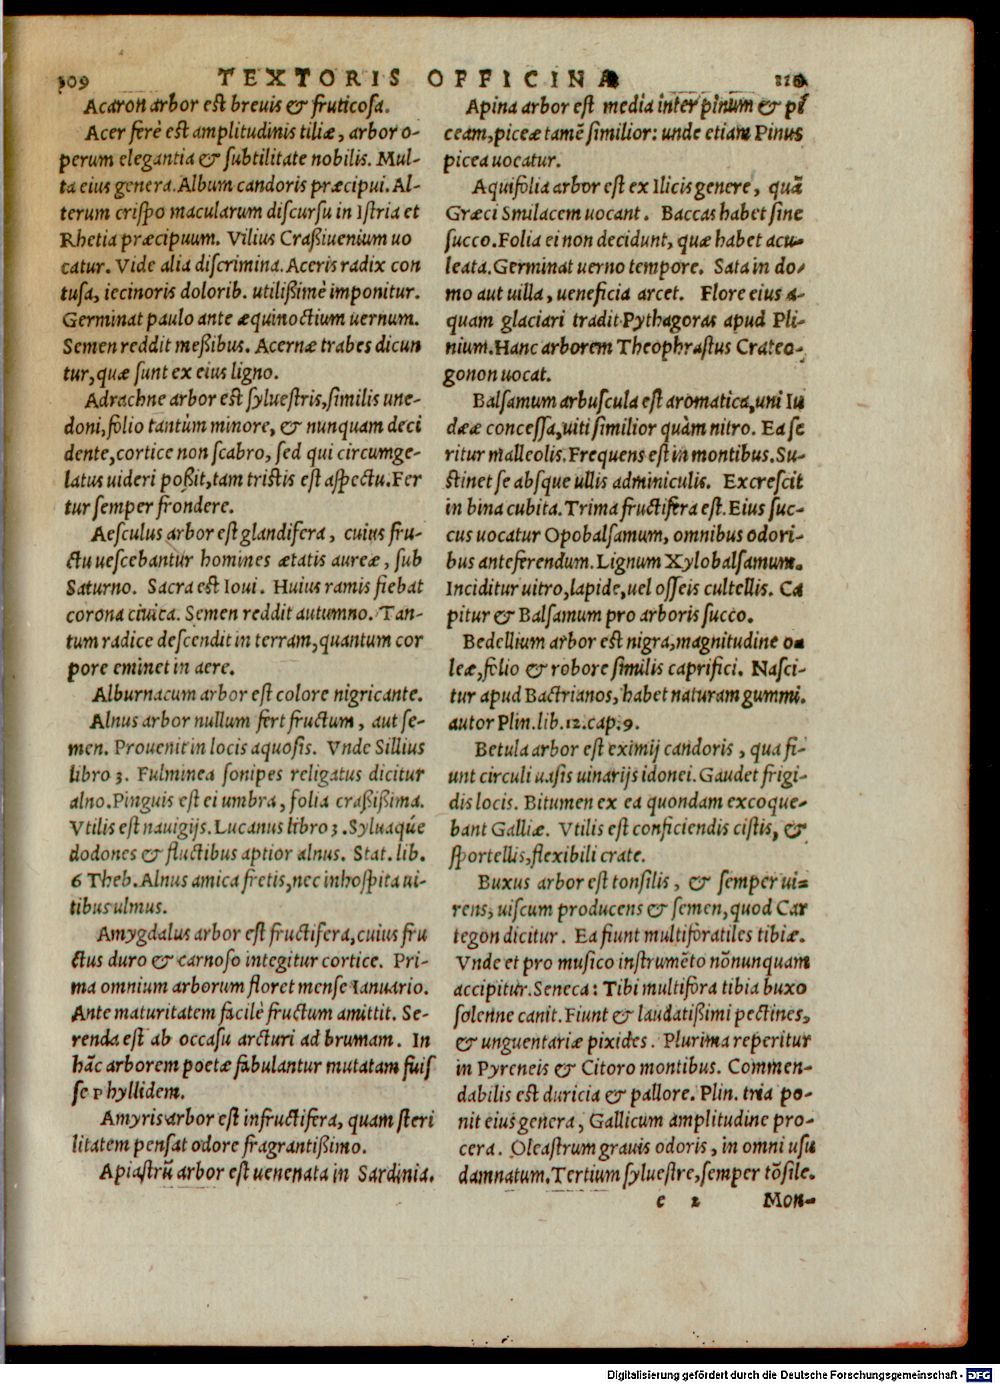 309 TEXTORIS OFFICINA 310
Acaron arbor est breuis & fruticosa.
Acer ferè est amplitudinis tiliæ, arbor o-
perum elegantia & subtilitate nobilis. Mul-
ta eius genera. Album candoris præcipui. Al-
terum crispo macularum discursu in Istria et
Rhetia præcipuum. Vilius Craßiuenium uo
catur. Vide alia discrimina. Aceris radix con
tusa, iecinoris dolorib. utilißimè imponitur.
Germinat paulo ante æquinoctium uernum.
Semen reddit meßibus. Acernæ trabes dicun
tur, quæ sunt ex eius ligno.
Adrachne arbor est syluestris, similis une-
doni, folio tantùm minore, & nunquam deci
dente, cortice non scabro, sed qui circumge-
latus uideri poßit, tam tristis est aspectu. Fer
tur semper frondere.
Aesculus arbor est glandifera, cuius fru-
ctu uescebantur homines ætatis aureæ, sub
Saturno. Sacra est Ioui. Huius ramis fiebat
corona ciuica. Semen reddit autumno. Tan-
tum radice descendit in terram, quantum cor
pore eminet in aere.
Alburnacum arbor est colore nigricante.
Alnus arbor nullum fert fructum, aut se-
men. Prouenit in locis aquosis. Vnde Sillius
libro 3. Fulminea sonipes religatus dicitur
alno. Pinguis est ei umbra, folia craßißima.
Vtilis est nauigijs. Lucanus libro 3. Syluaq́ue
dodones & fluctibus aptior alnus. Stat. lib.
6 Theb. Alnus amica fretis, nec inhospita ui-
tibus ulmus.
Amygdalus arbor est fructifera, cuius fru
ctus duro & carnoso integitur cortice. Pri-
ma omnium arborum floret mense Ianuario.
Ante maturitatem facilè fructum amittit. Se-
renda est ab occasu arcturi ad brumam. In
hãc arborem poetæ fabulantur mutatam fuis
se Phyllidem.
Amyris arbor est infructifera, quam steri
litatem pensat odore fragrantißimo.
Apiastrũ arbor est uenenata in Sardinia.
Apina arbor est media inter pinum & pi
ceam, piceæ tamẽ similior: unde etiam Pinus
picea uocatur.
Aquifolia arbor est ex Ilicis genere, quã
Græci Smilacem uocant. Baccas habet sine
succo. Folia ei non decidunt, quæ habet acu-
leata. Germinat uerno tempore. Sata in do-
mo aut uilla, ueneficia arcet. Flore eius a-
quam glaciari tradit Pythagoras apud Pli-
nium. Hanc arborem Theophrastus Crateo-
gonon uocat.
Balsamum arbuscula est aromatica, uni Iu
dææ concessa, uiti similior quàm nitro. Ea se
ritur malleolis. Frequens est in montibus. Su-
stinet se absque ullis adminiculis. Excrescit
in bina cubita. Trima fructifera est. Eius suc-
cus uocatur Opobalsamum, omnibus odori-
bus anteferendum. Lignum Xylobalsamum.
Inciditur uitro, lapide, uel osseis cultellis. Ca
pitur & Balsamum pro arboris succo.
Bedellium arbor est nigra, magnitudine o-
leæ, folio & robore similis caprifici. Nasci-
tur apud Bactrianos, habet naturam gummi.
autor Plin. lib. 12. cap. 9.
Betula arbor est eximij candoris, qua fi-
unt circuli uasis uinarijs idonei. Gaudet frigi-
dis locis. Bitumen ex ea quondam excoque-
bant Galliæ. Vtilis est conficiendis cistis, &
sportellis, flexibili crate.
Buxus arbor est tonsilis, & semper ui-
rens, uiscum producens & semen, quod Car
tegon dicitur. Ea fiunt multiforatiles tibiæ.
Vnde et pro musico instrumẽto nõnunquam
accipitur. Seneca: Tibi multifora tibia buxo
solenne canit. Fiunt & laudatißimi pectines,
& unguentariæ pixides. Plurima reperitur
in Pyreneis & Citoro montibus. Commen-
dabilis est duricia & pallore. Plin. tria po-
nit eius genera, Gallicum amplitudine pro-
cera. Oleastrum grauis odoris, in omni usu
damnatum. Tertium syluestre, semper tõsile.
e 2 Mon-
Digitalisierung gefördert durch die Deutsche Forschungsgemeinschaft - DFG